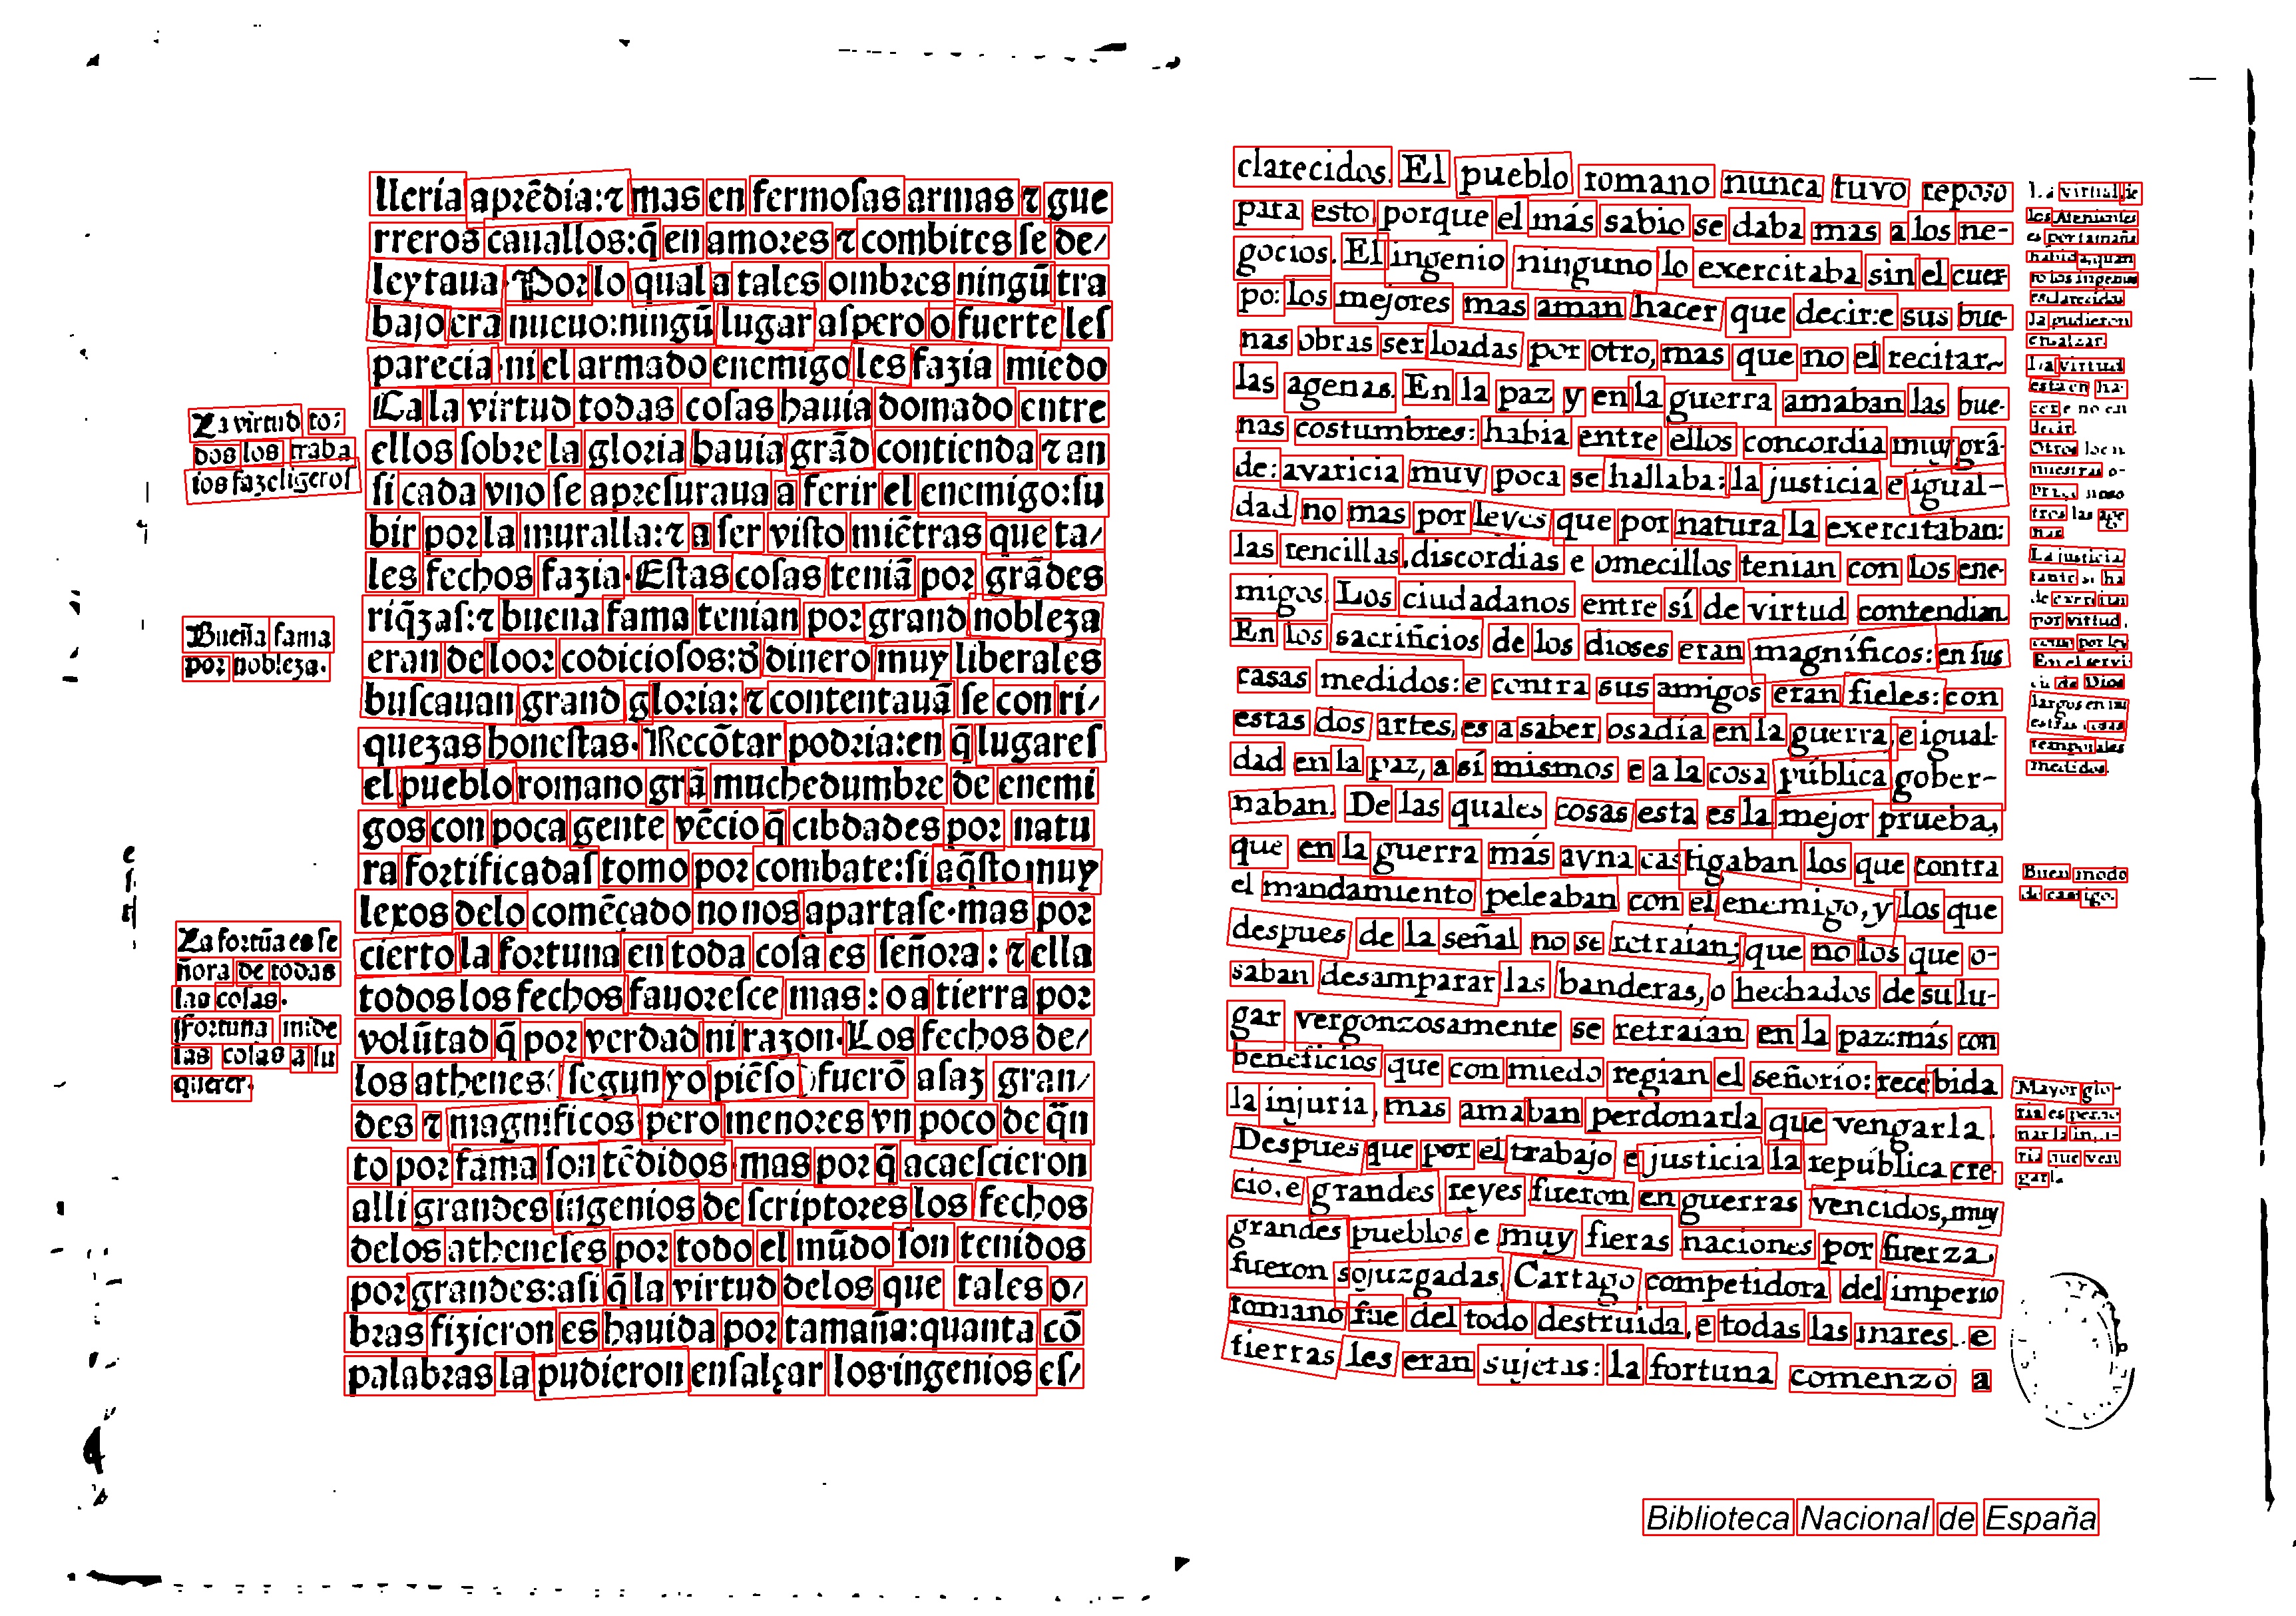 llería apꝛẽdia:⁊ mas en fermoſas armas ⁊ gue
rreros cauallos:q̃ en amoꝛes ⁊ combites ſe de/
leytaua. Poꝛ lo qual a tales ombꝛes ningũ tra
bajo era nueuo:ningũ lugar aſpero o fuerte leſ
parecia ni el armado enemigo les fazia miedo
Ca la virtud todas coſas hauia domado entre
ellos ſobꝛe la gloꝛia hauia grãd contienda ⁊ an
ſi cada vno ſe apꝛeſuraua a ferir el enemigo:ſu
bir poꝛ la muralla:⁊ a ſer viſto miẽtras que ta/
les fechos fazia. Eſtas coſas teniã poꝛ grãdes
riq̃zaſ:⁊ buena fama tenian poꝛ grand nobleza
eran de looꝛ codicioſos:d̃ dinero muy liberales
buſcauan grand gloꝛia:⁊ contentauã ſe con ri/
quezas honeſtas. Recõtar podꝛia:en q̃ lugareſ
el pueblo romano grã muchedumbꝛe de enemi
gos con poca gente vẽcio q̃ cibdades poꝛ natu
ra foꝛtificadaſ tomo poꝛ combate:ſi aq̃ſto muy
lexos delo comẽçado no nos apartaſe.mas poꝛ
cierto la foꝛtuna en toda coſa es ſeñoꝛa: ⁊ ella
todos los fechos fauoꝛeſce mas: o a tierra poꝛ
volũtad q̃ poꝛ verdad ni razon. Los fechos de/
los athenes (ſegun yo piẽſo) fuerõ aſaz gran/
des ⁊ magnificos pero menoꝛes vn poco de q̃n
to poꝛ fama ſon tẽdidos mas poꝛ q̃ acaeſcieron
alli grandes ingenios de ſcriptoꝛes los fechos
delos atheneſes poꝛ todo el mũdo ſon tenidos
poꝛ grandes:aſi q̃ la virtud delos que tales o/
bꝛas fizieron es hauida poꝛ tamaña:quanta cõ
palabꝛas la pudieron enſalçar los ingenios eſ/
La virtud to:
dos los traba
ios faze ligeroſ
Bueña fama
poꝛ nobleza.
La foꝛtũa es ſe
ñora de todas
las coſas.
Foꝛtuna mide
las coſas a ſu
querer.
clarecidos. El pueblo romano nunca tuvo reposo
para esto, porque el más sabio se daba mas a los ne-
gocios. El ingenio ninguno lo exercitaba sin el cuer
po: los mejores mas aman hacer que decir:e sus bue-
nas obras ser loadas por otro, mas que no el recitar
las agenas. En la paz y en la guerra amaban las bue-
nas costumbres: habia entre ellos concordia muy grã-
de: avaricia muy poca se hallaba: la justicia e igual-
dad no mas por leyes que por natura la exercitaban:
las rencillas, discordias e omecillos tenian con los ene-
migos. Los ciudadanos entre sí de virtud contendian.
En los sacrificios de los dioses eran magníficos: en sus
casas medidos: e contra sus amigos eran fieles: con
estas dos artes, es a saber, osadía en la guerra, e igual-
dad en la paz, a sí mismos e a la cosa pública gober-
naban. De las quales cosas esta es la mejor prueba,
que en la guerra más avna castigaban los que contra
el mandamiento peleaban con el enemigo, y los que
despues de la señal no se retraían; que no los que o-
saban desamparar las banderas, o hechados de su lu-
gar vergonzosamente se retraían en la paz:más con
beneficios que con miedo regian el señorío: recebida
la injuria, mas amaban perdonarla que vengarla.
Despues que por el trabajo e justicia la república cre-
cio, e grandes reyes fueron en guerras vencidos, muy
grandes pueblos e muy fieras naciones por fuerza.
fueron sojuzgadas, Cartago competidora del imperio
romano fue del todo destruida, e todas las mares. e
tierras les eran sujetas: la fortuna comenzó a
La virtud de
los Atenienses
es por tamaña
habida, quan
to los ingenios
esclarecidos
la pudieron
ensalzar.
La virtud
esta en ha-
cer e no en
decir.
Otros loen
nuestras o-
bras, no so
tros las age
nas
La justicia
tanto se ha
de exercitar
por virtud,
como por ley
En el servi
cio de Dios
largos en nu
estras casas
temporales
medidos.
Buen modo
de castigo.
Mayor glo-
ria es perdo
nar la inju-
ria que ven
garla.
Biblioteca Nacional de España